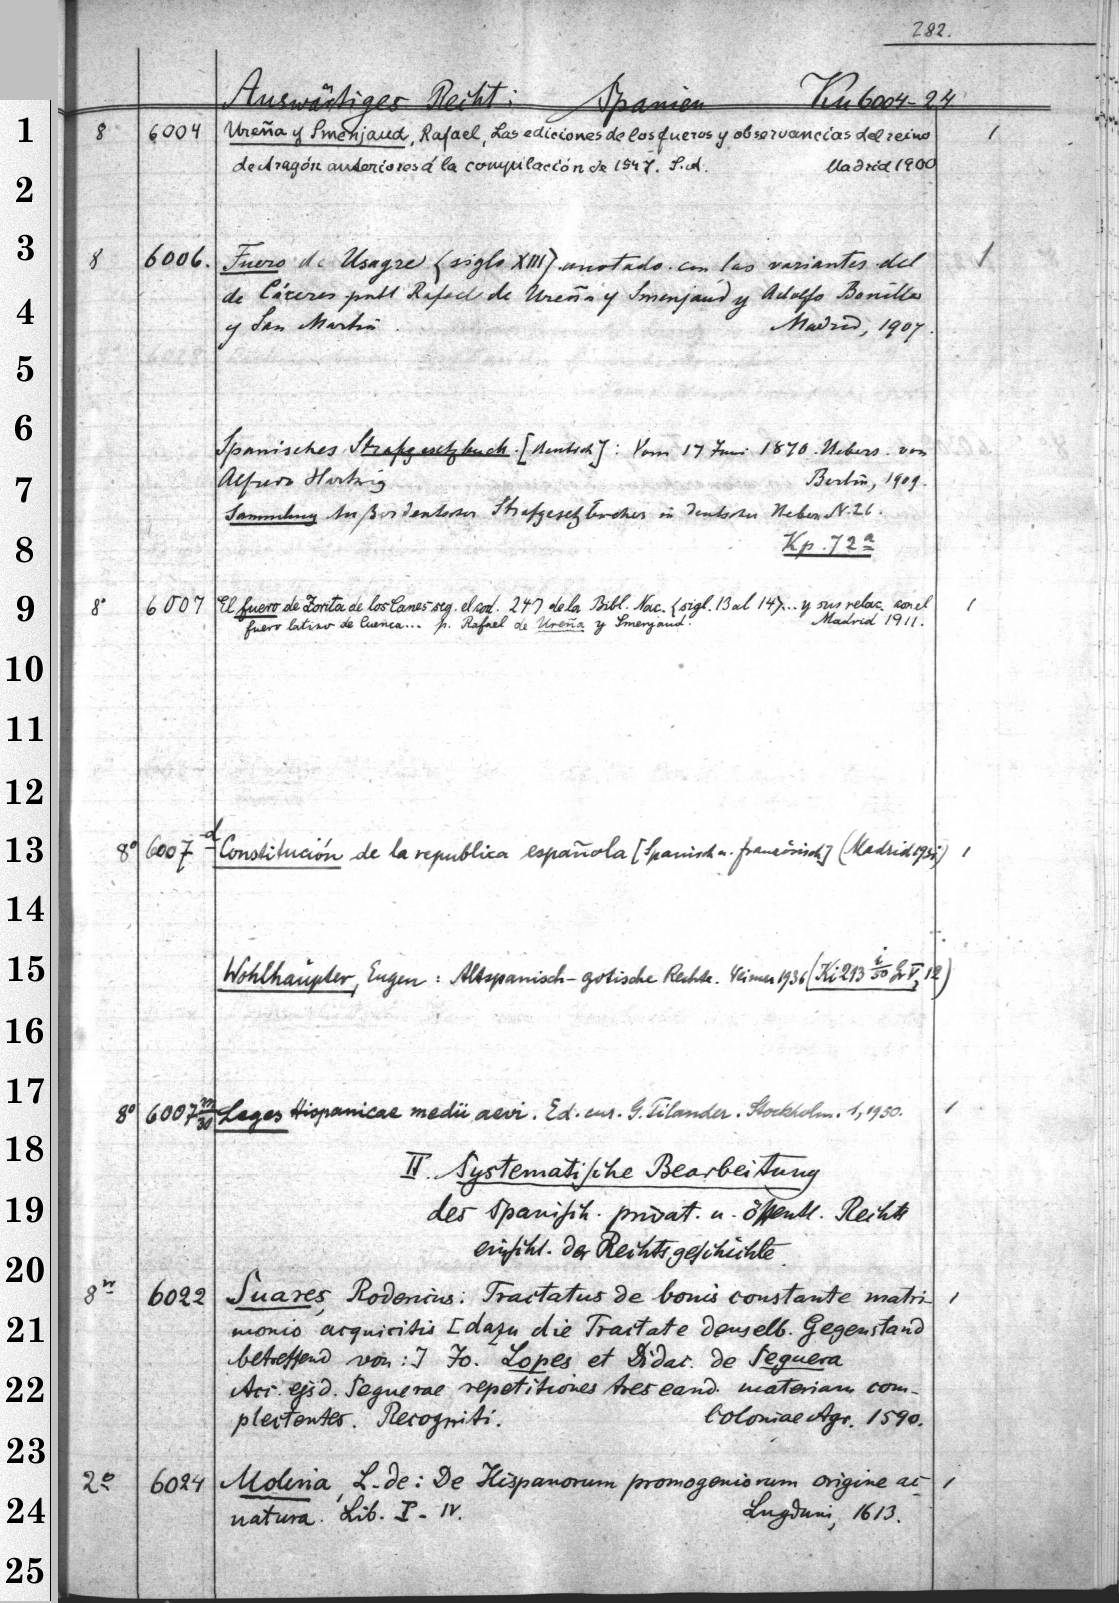 282.
Auswärtiges Recht: Spanien Ku 6004-24
1 8 6004 Ureña y Smenjaud, Rafael, Las ediciones de los fueros y observancias del reino 1
de Aragón anteriores á la compilación de 1547. S.A. Madrid 1900
2
3 8 6006. Fuero de Usagre {siglo XIII} anotado con las variantes del 1
4 de Cáceres publ Rafael de Ureña y Smenjaud y Adolfo Bonilla
y San Martin. Madrid, 1907.
5
6 Spanisches Strafgesetzbuch. [deutsch]: Vom 17 Juni 1870. Uebers. von
7 Alfredo Hartwig Berlin, 1909.
Sammlung außerdeutscher Strafgesetzbücher in deutscher Uebers. N. 26.
8 Kp. 72a
9 8° 6007 El fuero de Zorita de los Canes seg. el cod. 247 de la Bibl. Nac. {sigl. 13 al 14}... y sus relac. con el 1
fuero latino de Cuenca... p. Rafael de Ureña y Smenjaud. Madrid 1911.
10
11
12
13 8° 6007 d Constitución de la republica española [Spanisch u. französisch] (Madrid 1931) 1
14
15 Wohlhaupter, Eugen: Altspanisch-gotische Rechte. Weimar 1936 (Ki 293 i/50 Gr V, 12)
16
17 8° 6007 m/30 Leges Hispanicae medii aevi. Ed. cur. G. Tilander. Stockholm. 1, 1950. 1
18 II. Systematische Bearbeitung
19 des spanisch. privat. u. öffentl. Rechts
einschl. der Rechtsgeschichte.
20 8° 6022 Suares, Rodericus: Tractatus de bonis constante matri- 1
21 monio acquisitis [dazu die Tractate denselb. Gegenstand
betreffend von:] Jo. Lopes et Didac. de Seguera
22 Acc. ejsd. Seguerae repetitiones tres eand. materiam com-
plectentes. Recogniti. Coloniae Agr. 1590.
23 2° 6024 Molina, L. de: De Hispanorum promogeniorum origine ac 1
24 natura. Lib. I - IV. Lugduni, 1613.
25